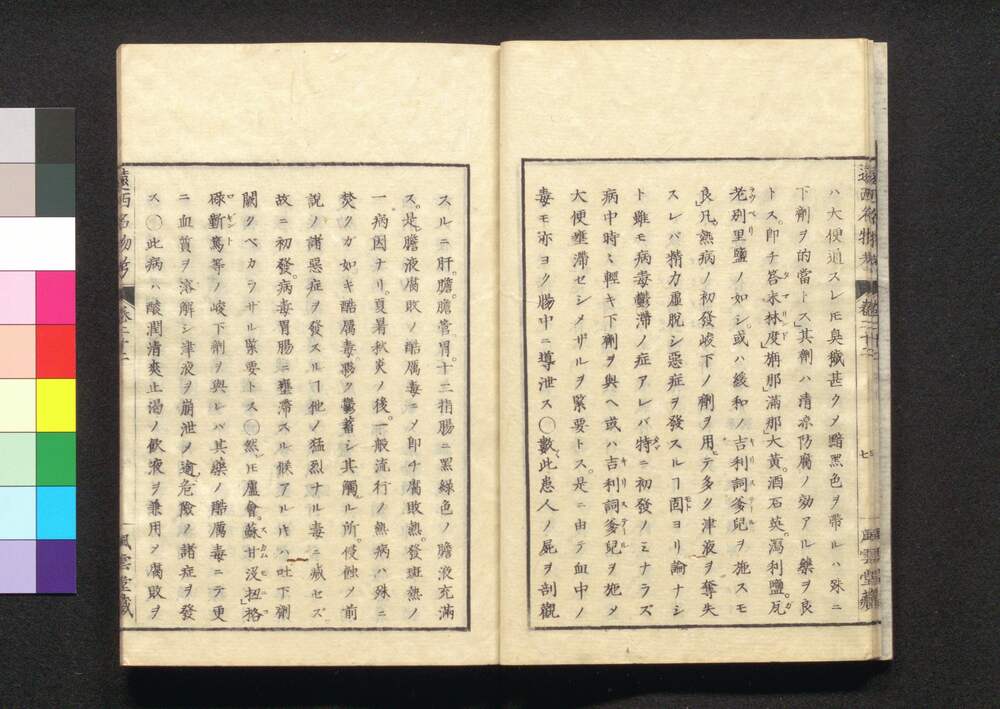 ハ大便通スレ𪜈臭穢甚クメ黯黒色ヲ帯ル ハ殊ニ
下劑ヲ的當トス其劑ハ清涼防腐ノ効アル藥ヲ良
トス。即チ荅末林度「タマリンド」㾿那「滿那」大黄。酒石英。瀉利鹽。瓦
老別里鹽ノ如シ。或ハ緩和ノ吉利詞爹兒ヲ施スモ
良。凡熱病ノ初發峻下ノ劑ヲ用テ多ク津液ヲ奪失
スレバ精力虚脱シ惡症ヲ發スルヿ固ヨリ論ナシ
ト雖モ病毒鬱滞ノ症アレバ特ニ初發ノミナラズ
病中時々輕キ下劑ヲ與ヘ或ハ吉利詞爹兒ヲ施メ
大便壅滞セシメザルヲ緊要トス。是ニ由テ血中ノ
毒モ亦ヨク腸中ニ導泄ス〇數此患人ノ屍ヲ剖觀
遠西名物考 巻二十二 七 風雲堂藏
スルニ肝。膽。膽管。胃。十二指腸ニ黒緑色ノ膽液充滿
ス。是膽液腐敗ノ酷厲毒ニメ即チ腐敗熱。發斑熱ノ
一病因ナリ。夏暑秋炎ノ後。一般流行ノ熱病ハ殊ニ
焚クガ如キ酷厲毒。夥ク鬱蓄シ其觸ル所。侵蝕ノ前
説ノ諸惡症ヲ發スルヿ他ノ猛烈ナル毒ニ減セズ
故ニ初發。病毒胃腸ニ壅滞スル候アル𪜈ハ吐下劑
闕クベカラサル緊要トス〇然𪜈蘆會。蘇甘没扭「格
碌斳篤等ノ峻下劑ヲ與レバ其藥ノ酷厲毒ニテ更
ニ血質ヲ溶解シ津液ヲ崩泄ノ逾危險ノ諸症ヲ發
ス〇此病ハ酸潤清爽止渇ノ飲液ヲ兼用メ腐敗ヲ
遠西名物考 巻二十二 風雲堂藏